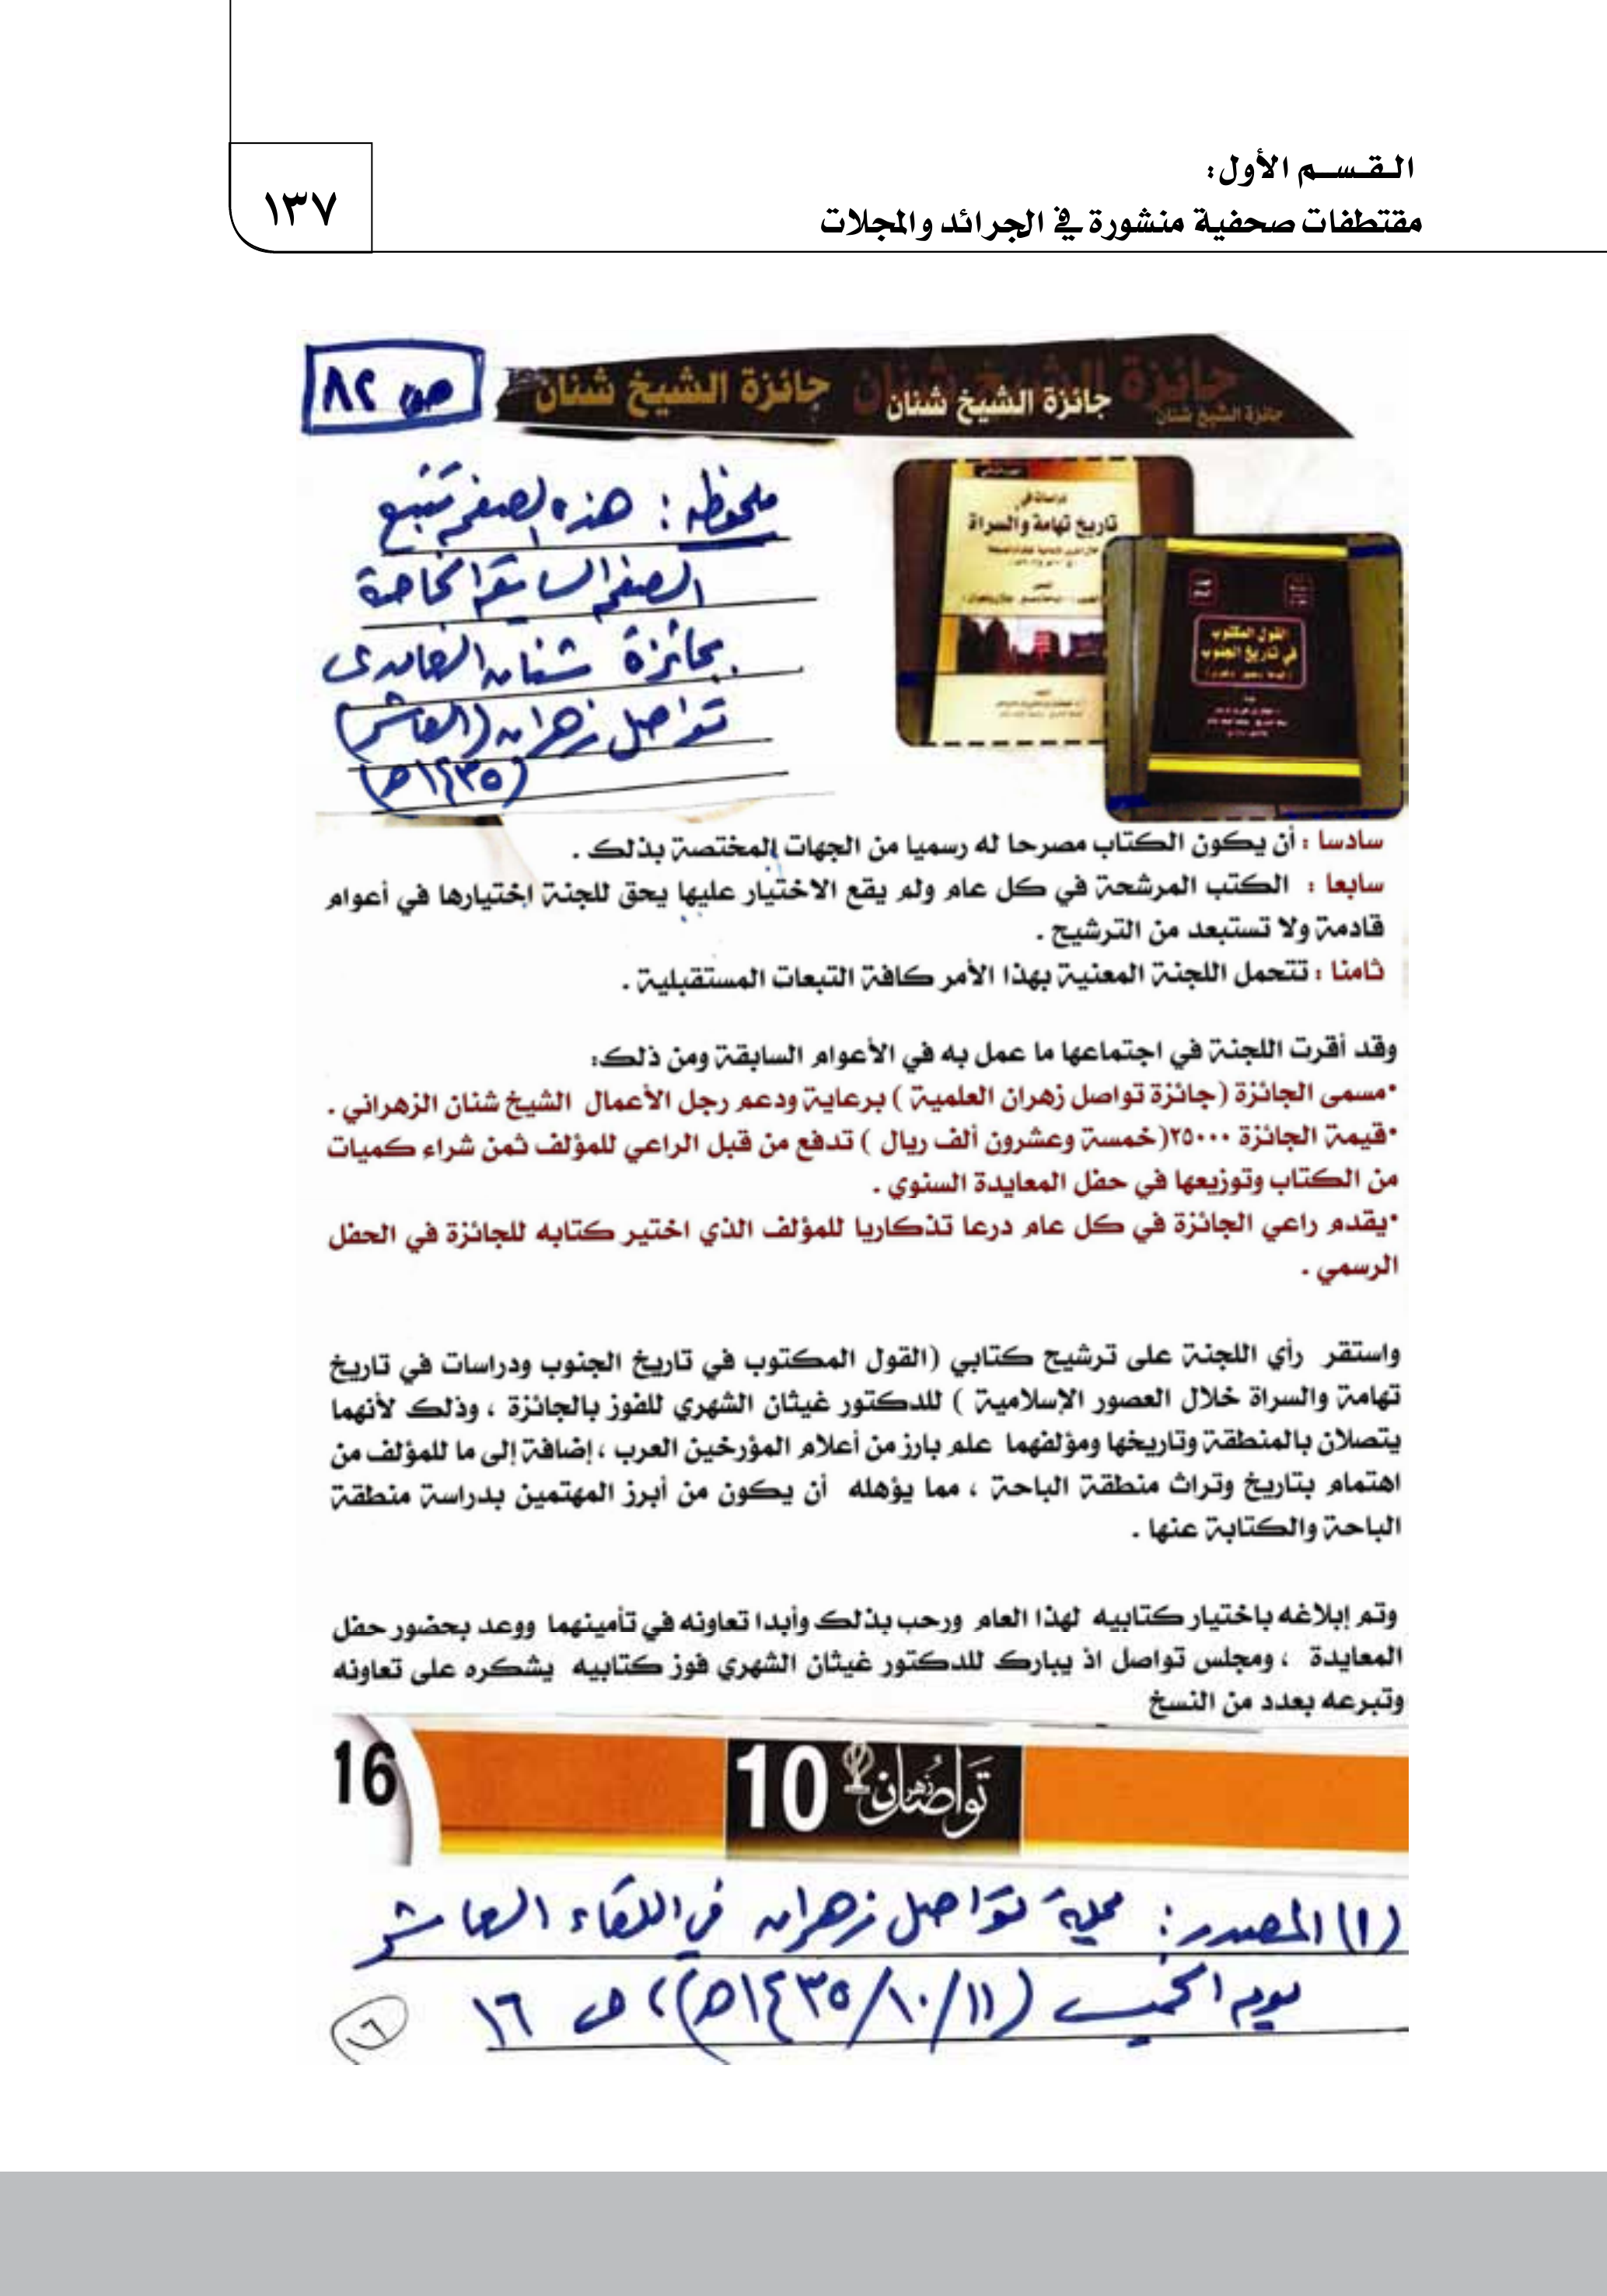 القسم الأول:
مقتطفات صحفية منشورة في الجرائد والمجلات
١٣٧
جائزة الشيخ شنان
جائزة الشيخ شنان
جائزة الشيخ شنان
جائزة الشيخ شنان
ص ٨٢
ملحوظه: هذه الصفحه تتبع
الصفحه السابقه الخاصة
بجائزة شنان الغامدي
تواصل زهران (العاشر)
(١٤٣٥هـ)
دراسات في
تاريخ تهامة والسراة
القول المكتوب
في تاريخ الجنوب
سادسا : أن يكون الكتاب مصرحا له رسميا من الجهات المختصة بذلك .
سابعا : الكتب المرشحة في كل عام ولم يقع الاختيار عليها يحق للجنة اختيارها في أعوام
قادمة ولا تستبعد من الترشيح .
ثامنا : تتحمل اللجنة المعنية بهذا الأمر كافة التبعات المستقبلية .
وقد أقرت اللجنة في اجتماعها ما عمل به في الأعوام السابقة ومن ذلك:
•مسمى الجائزة (جائزة تواصل زهران العلمية ) برعاية ودعم رجل الأعمال الشيخ شنان الزهراني .
•قيمة الجائزة ٢٥٠٠٠(خمسة وعشرون ألف ريال ) تدفع من قبل الراعي للمؤلف ثمن شراء كميات
من الكتاب وتوزيعها في حفل المعايدة السنوي .
•يقدم راعي الجائزة في كل عام درعا تذكاريا للمؤلف الذي اختير كتابه للجائزة في الحفل
الرسمي .
واستقر رأي اللجنة على ترشيح كتابي (القول المكتوب في تاريخ الجنوب ودراسات في تاريخ
تهامة والسراة خلال العصور الإسلامية ) للدكتور غيثان الشهري للفوز بالجائزة ، وذلك لأنهما
يتصلان بالمنطقة وتاريخها ومؤلفهما علم بارز من أعلام المؤرخين العرب ، إضافة إلى ما للمؤلف من
اهتمام بتاريخ وتراث منطقة الباحة ، مما يؤهله أن يكون من أبرز المهتمين بدراسة منطقة
الباحة والكتابة عنها .
وتم إبلاغه باختيار كتابيه لهذا العام ورحب بذلك وأبدا تعاونه في تأمينهما ووعد بحضور حفل
المعايدة ، ومجلس تواصل اذ يبارك للدكتور غيثان الشهري فوز كتابيه يشكره على تعاونه
وتبرعه بعدد من النسخ
تواصل زهران 10
16
(١) المصدر: مجلة تواصل زهران في اللقاء العاشر
يوم الخميس (١١/١٠/١٤٣٥هـ)، ص ١٦
١٦